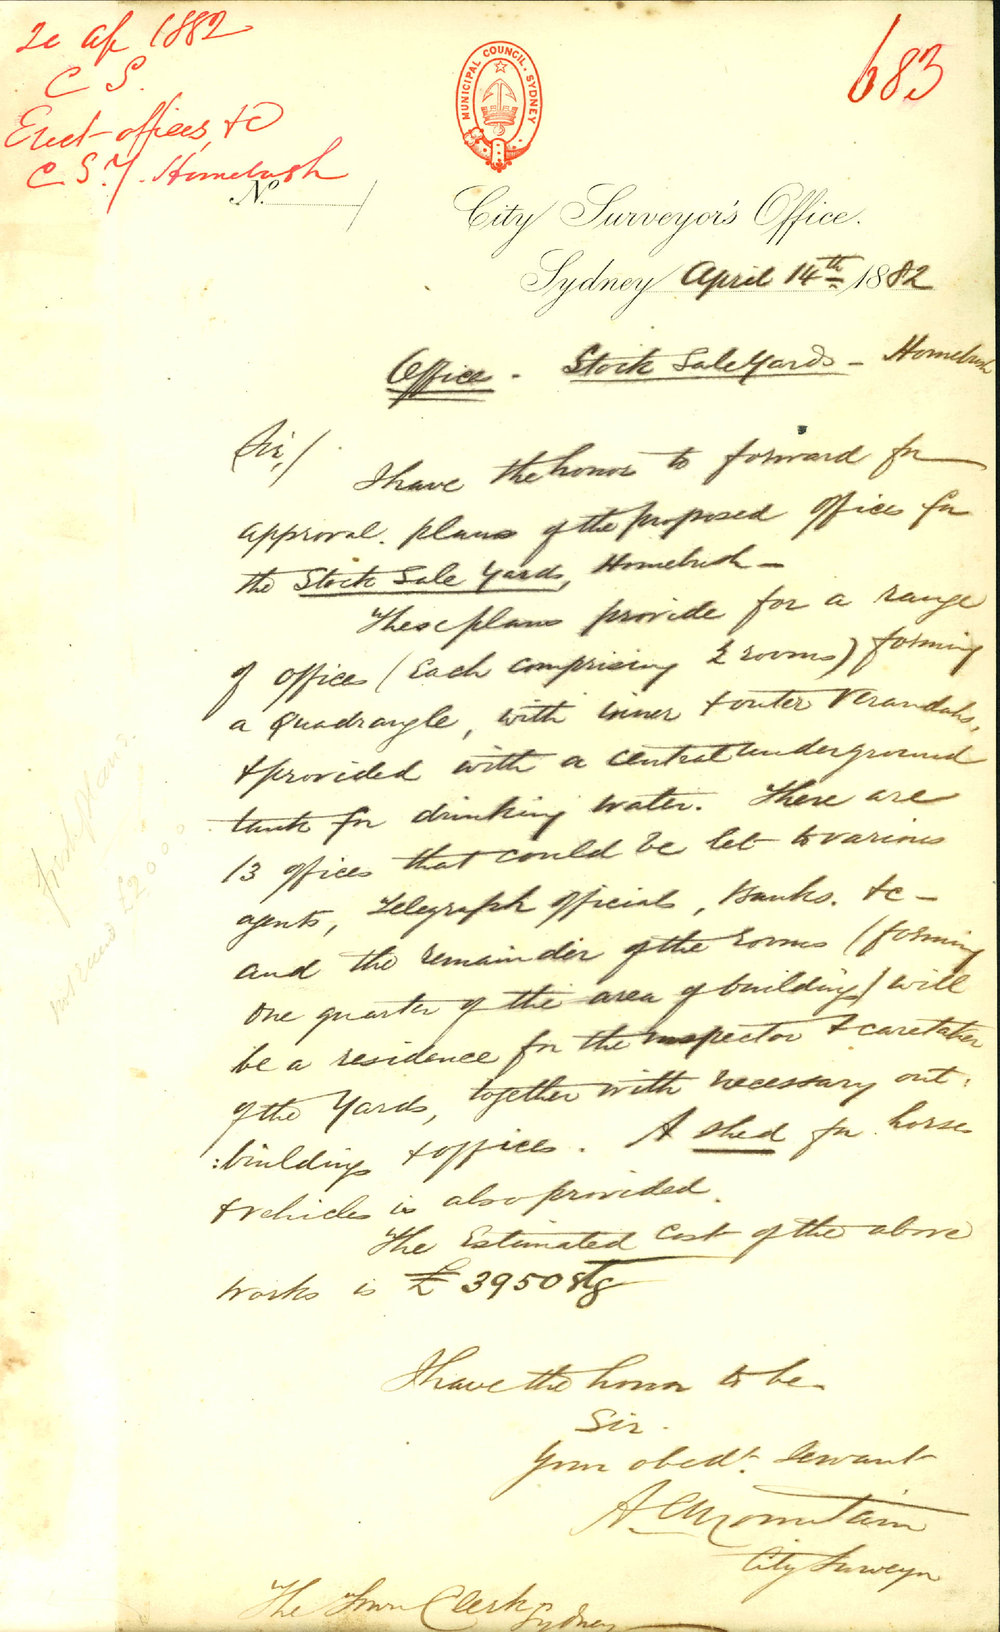 20 Ap 1882
C S.
Erect offices, &c
C.S.Y. Homebush
683
MUNICIPAL COUNCIL. SYDNEY
No.
City Surveyor's Office.
Sydney April 14th 1882
Office - Stock Sale Yards - Homebush
Sir,/
I have the honor to forward for
approval. plans of the proposed offices for
the Stock Sale Yards, Homebush -
These plans provide for a range
of offices (each comprising 2 rooms) forming
a Quadrangle, with inner & outer Verandahs,
& provided with a central underground
tank for drinking water. There are
13 offices that could be let to various
agents, Telegraph Officials, Banks. &c -
and the remainder of the rooms (forming
one quarter of the area of buildings) will
be a residence for the Inspector & caretaker
of the Yards, together with necessary out:
:buildings & offices. A shed for horses
& vehicles is also provided.
The Estimated cost of the above
works is £3950 stg
I have the honor to be
Sir.
Your obedt. Servant
A C Mountain
City Surveyor
The Town Clerk
Sydney